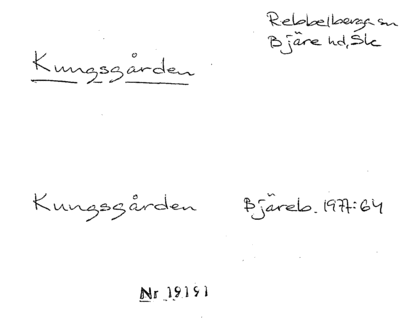 Rebbelberga sn
Bjäre hd, Sk
Kungsgården
Kungsgården Bjäreb. 1977:64
Nr 19191